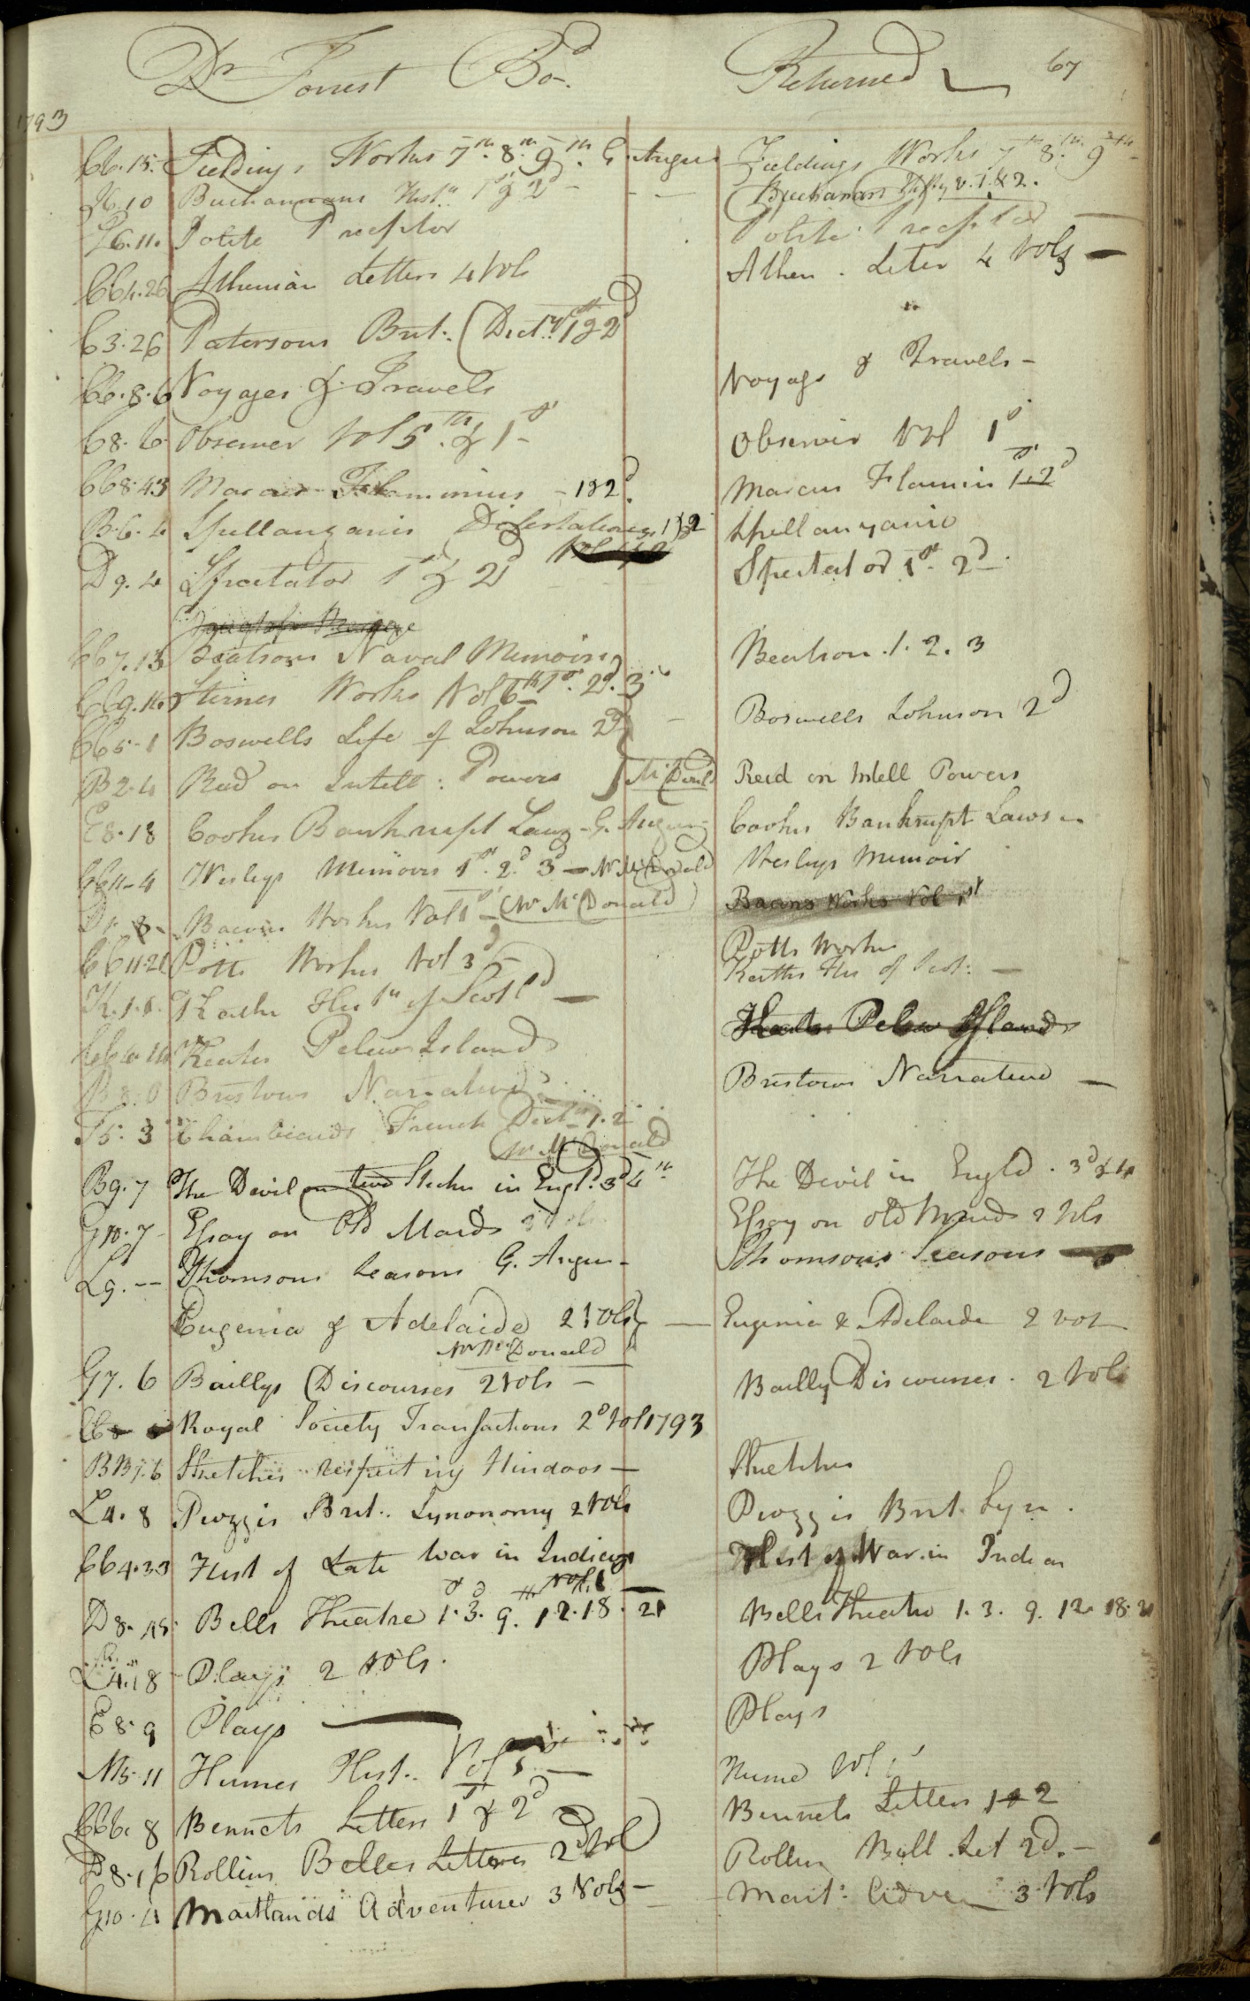 Dr Forrest Bod. Returned 67
1793
C6.15. Fieldings Works 7th. 8th. 9th. G. Angus Fieldings Works 7th 8th. 9th
K.10 Buchannans Histy 1st & 2d Buchanans Histy v. 1. & 2.
I6.11. Polite Preceptor Polite Preceptor
CC4.26 Athenian Letters 4 Vols Athen. Leter 4 Vols
C3.26 Patersons Brit: Dicty. 1st & 2d
CC.8.6 Voyages & Travels Voyags & Travels
C8.6 Observer Vol 5th. & 1st Observer Vol 1st
CC8.43 Marcus Flaminius 1 & 2d. Marcus Flamin 1st. 2d
B.6.4 Spallanzanis Disertations 1 & 2 Spallanzanis
D9.4 Spectator 1st & 2d Spectator 1st. 2d.
CC7.13 Beatsons Naval Memoirs Beatson. 1. 2. 3
CC9.16 Sternes Works Vol 6th 1st. 2d. 3
CC5.1 Boswells Life of Johnson 2d Boswells Johnson 2d
B2.4 Read on Intell: Powers McDonald Reid on Intell Powers
E8.18 Cookes Bankrupt Laws - G. Angus Cooks Bankrupt Laws
CC11.4 Wesleys Memoirs 1st. 2d. 3d - Mr McDonald Wesleys Memoir
D1.8. Bacons Works Vol 1st (Mr McDonald) Bacons Works Vol 1st
CC11.21 Potts Works Vol 3d Potts Works
K.1.1. Keiths Histy of Scotld Keiths His of Scot:
Keates Pelew Islands Keates Pelew Islands
B8.8 Bristows Narrative Bristows Narrative
T5.3 Chambauds French Dicty 1. 2
Mr McDonald
B9.7 The Devil on two Sticks in Engld. 3d 4th The Devil in Engld. 3d & 4
G10.7 Essay on Old Maids 3 Vols Essay on Old Maids 3 Vols
L9.-- Thomsons Seasons G. Angus Thomsons Seasons
Eugenia & Adelaide 2 Vols Eugenia & Adelaide 2 vol
Mr McDonald
G7.6 Baillys Discourses 2 Vols Bailly Discourses. 2 Vols
Royal Society Transactions 2d Vol 1793
BB7.6 Sketches respecting Hindoos Sketches
L4.8 Piozzis Brit. Synonomy 2 Vols Piozzis Brit Syn.
CC4.33 Hist of Late War in Indies Hist of War in Indies
D8.15. Bells Theatre 1st. 3d. 9th. 12. 18. 21 Bells Theatre 1. 3. 9. 12. 18. 21
L4.18 Plays 2 Vols. Plays 2 Vols
E8.9 Plays Plays
M5.11 Humes Hist. Vol 1st Hume Vol 1
CC6.8 Bennets Letters 1st & 2d Bennets Letters 1 & 2
D8.16 Rollins Belles Lettres 2d Vol Rollin Bell. Let 2d.
G10.11 Maitlands Adventures 3 Vols Mait: Adven 3 Vols